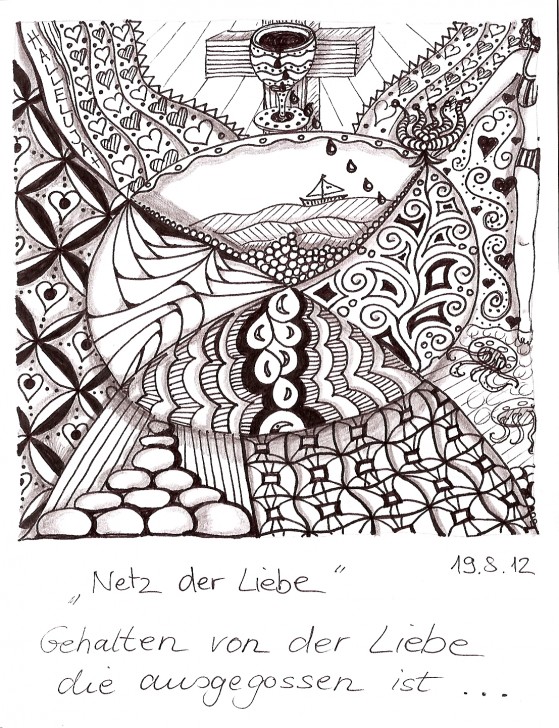 HALEDJA
19.8.12
„Netz der Liebe“
Gehalten von der Liebe
die ausgegossen ist ...